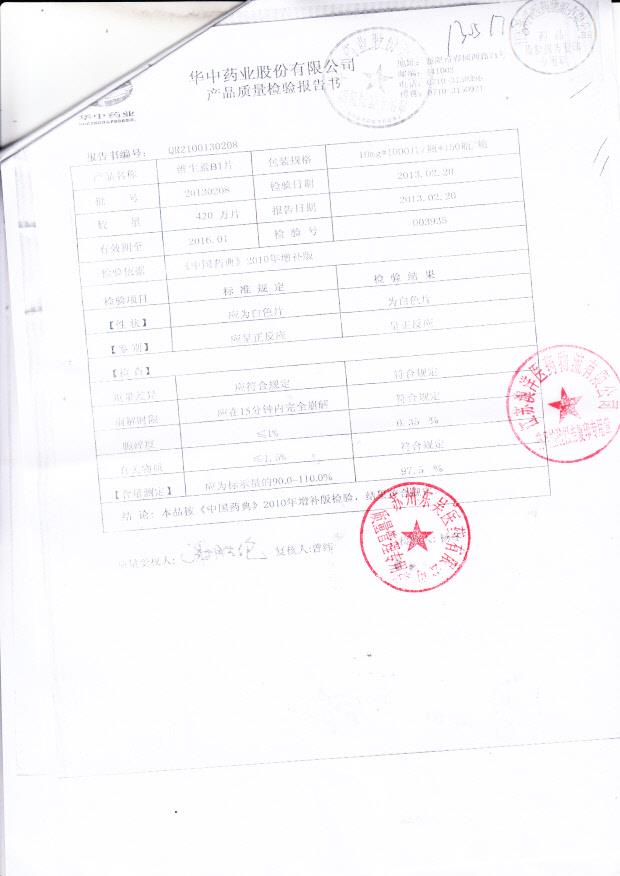 华中药业股份有限公司
产品质量检验报告书
华中药业
地址：
邮编：441003
电话：0710-
传真：0710-3150921
报告书编号： QR2100130208
产品名称 维生素B1片 包装规格 10mg*1000片/瓶*150瓶/箱
批 号 20130208 检验日期 2013.02.20
数 量 420 万片 报告日期 2013.02.20
有效期至 2016.01 检 验 号 003935
检验依据 《中国药典》2010年增补版
检验项目 标 准 规 定 检 验 结 果
【性 状】 应为白色片 为白色片
【鉴 别】 应呈正反应 呈正反应
【检 查】
重量差异 应符合规定 符合规定
崩解时限 应在15分钟内完全崩解 符合规定
脆碎度 ≤1% 0.35 %
有关物质 ≤1.5% 符合规定
【含量测定】 应为标示量的90.0-110.0% 97.5 %
结 论：本品按《中国药典》2010年增补版检验，结果
质量受权人： 复核人:曾
苏州东吴医药有限公司
质量管理